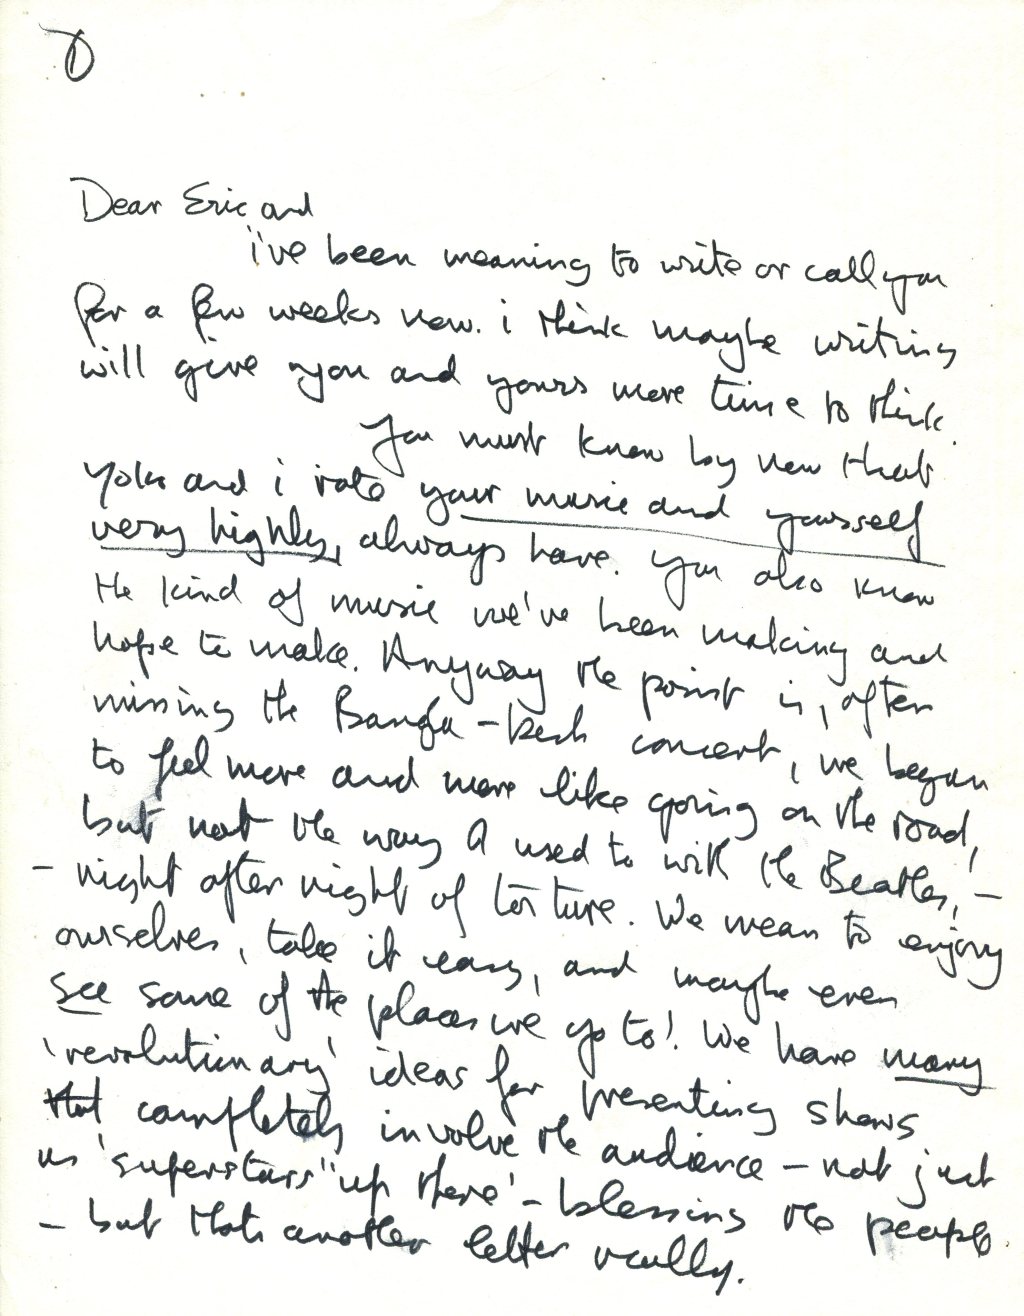 ①
Dear Eric and
i've been meaning to write or call you
for a few weeks now. i think maybe writing
will give you and yours more time to think.
You must know by now that
Yoko and i rate your music and yourself
very highly, always have. You also know
the kind of music we've been making and
hope to make. Anyway the point is, after
missing the Bangla-desh concert, we began
to feel more and more like going on the road,
but not the way I used to with the Beatles, –
– night after night of torture. We mean to enjoy
ourselves, take it easy, and maybe even
see some of the places we go to! We have many
'revolutionary' ideas for presenting shows
that completely involve the audience – not just
us 'superstars' 'up there' – blessing the people
– but thats another letter really.